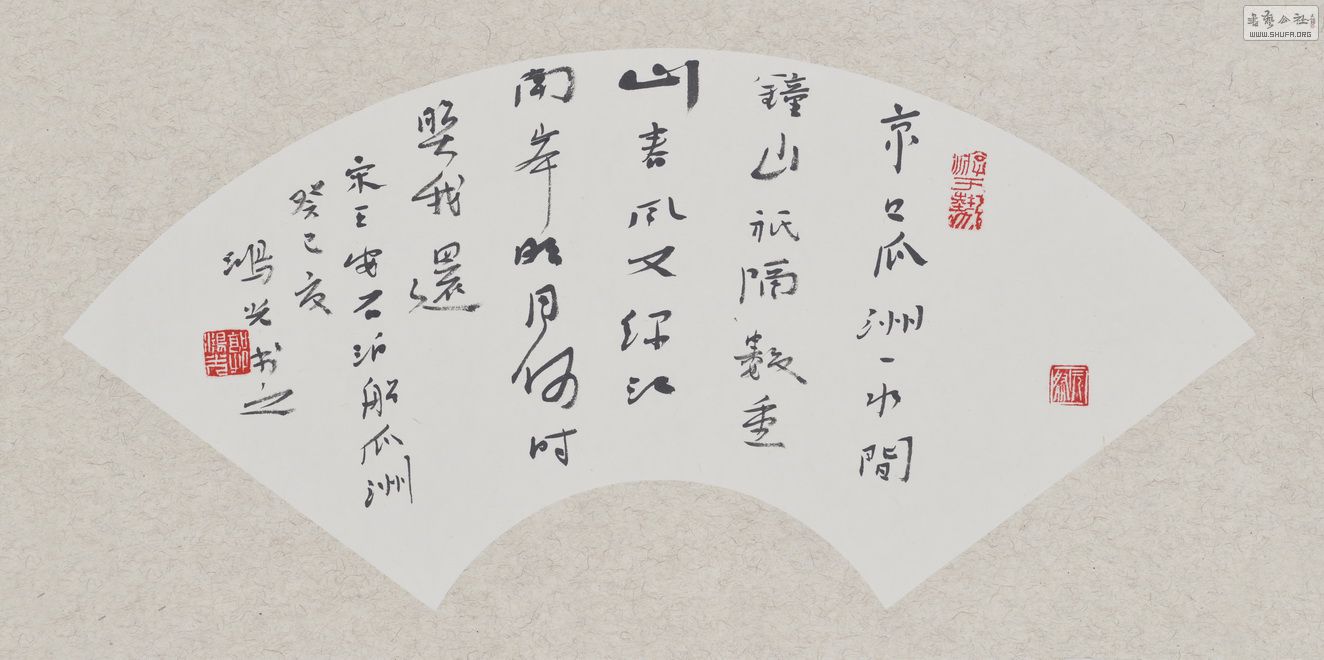 京口瓜洲一水間
鐘山祇隔數重
山春風又綠江
南岸明月何時
照我還
宋王安石泊船瓜洲
癸巳夏
鴻光书之
WWW.SHUFA.ORG